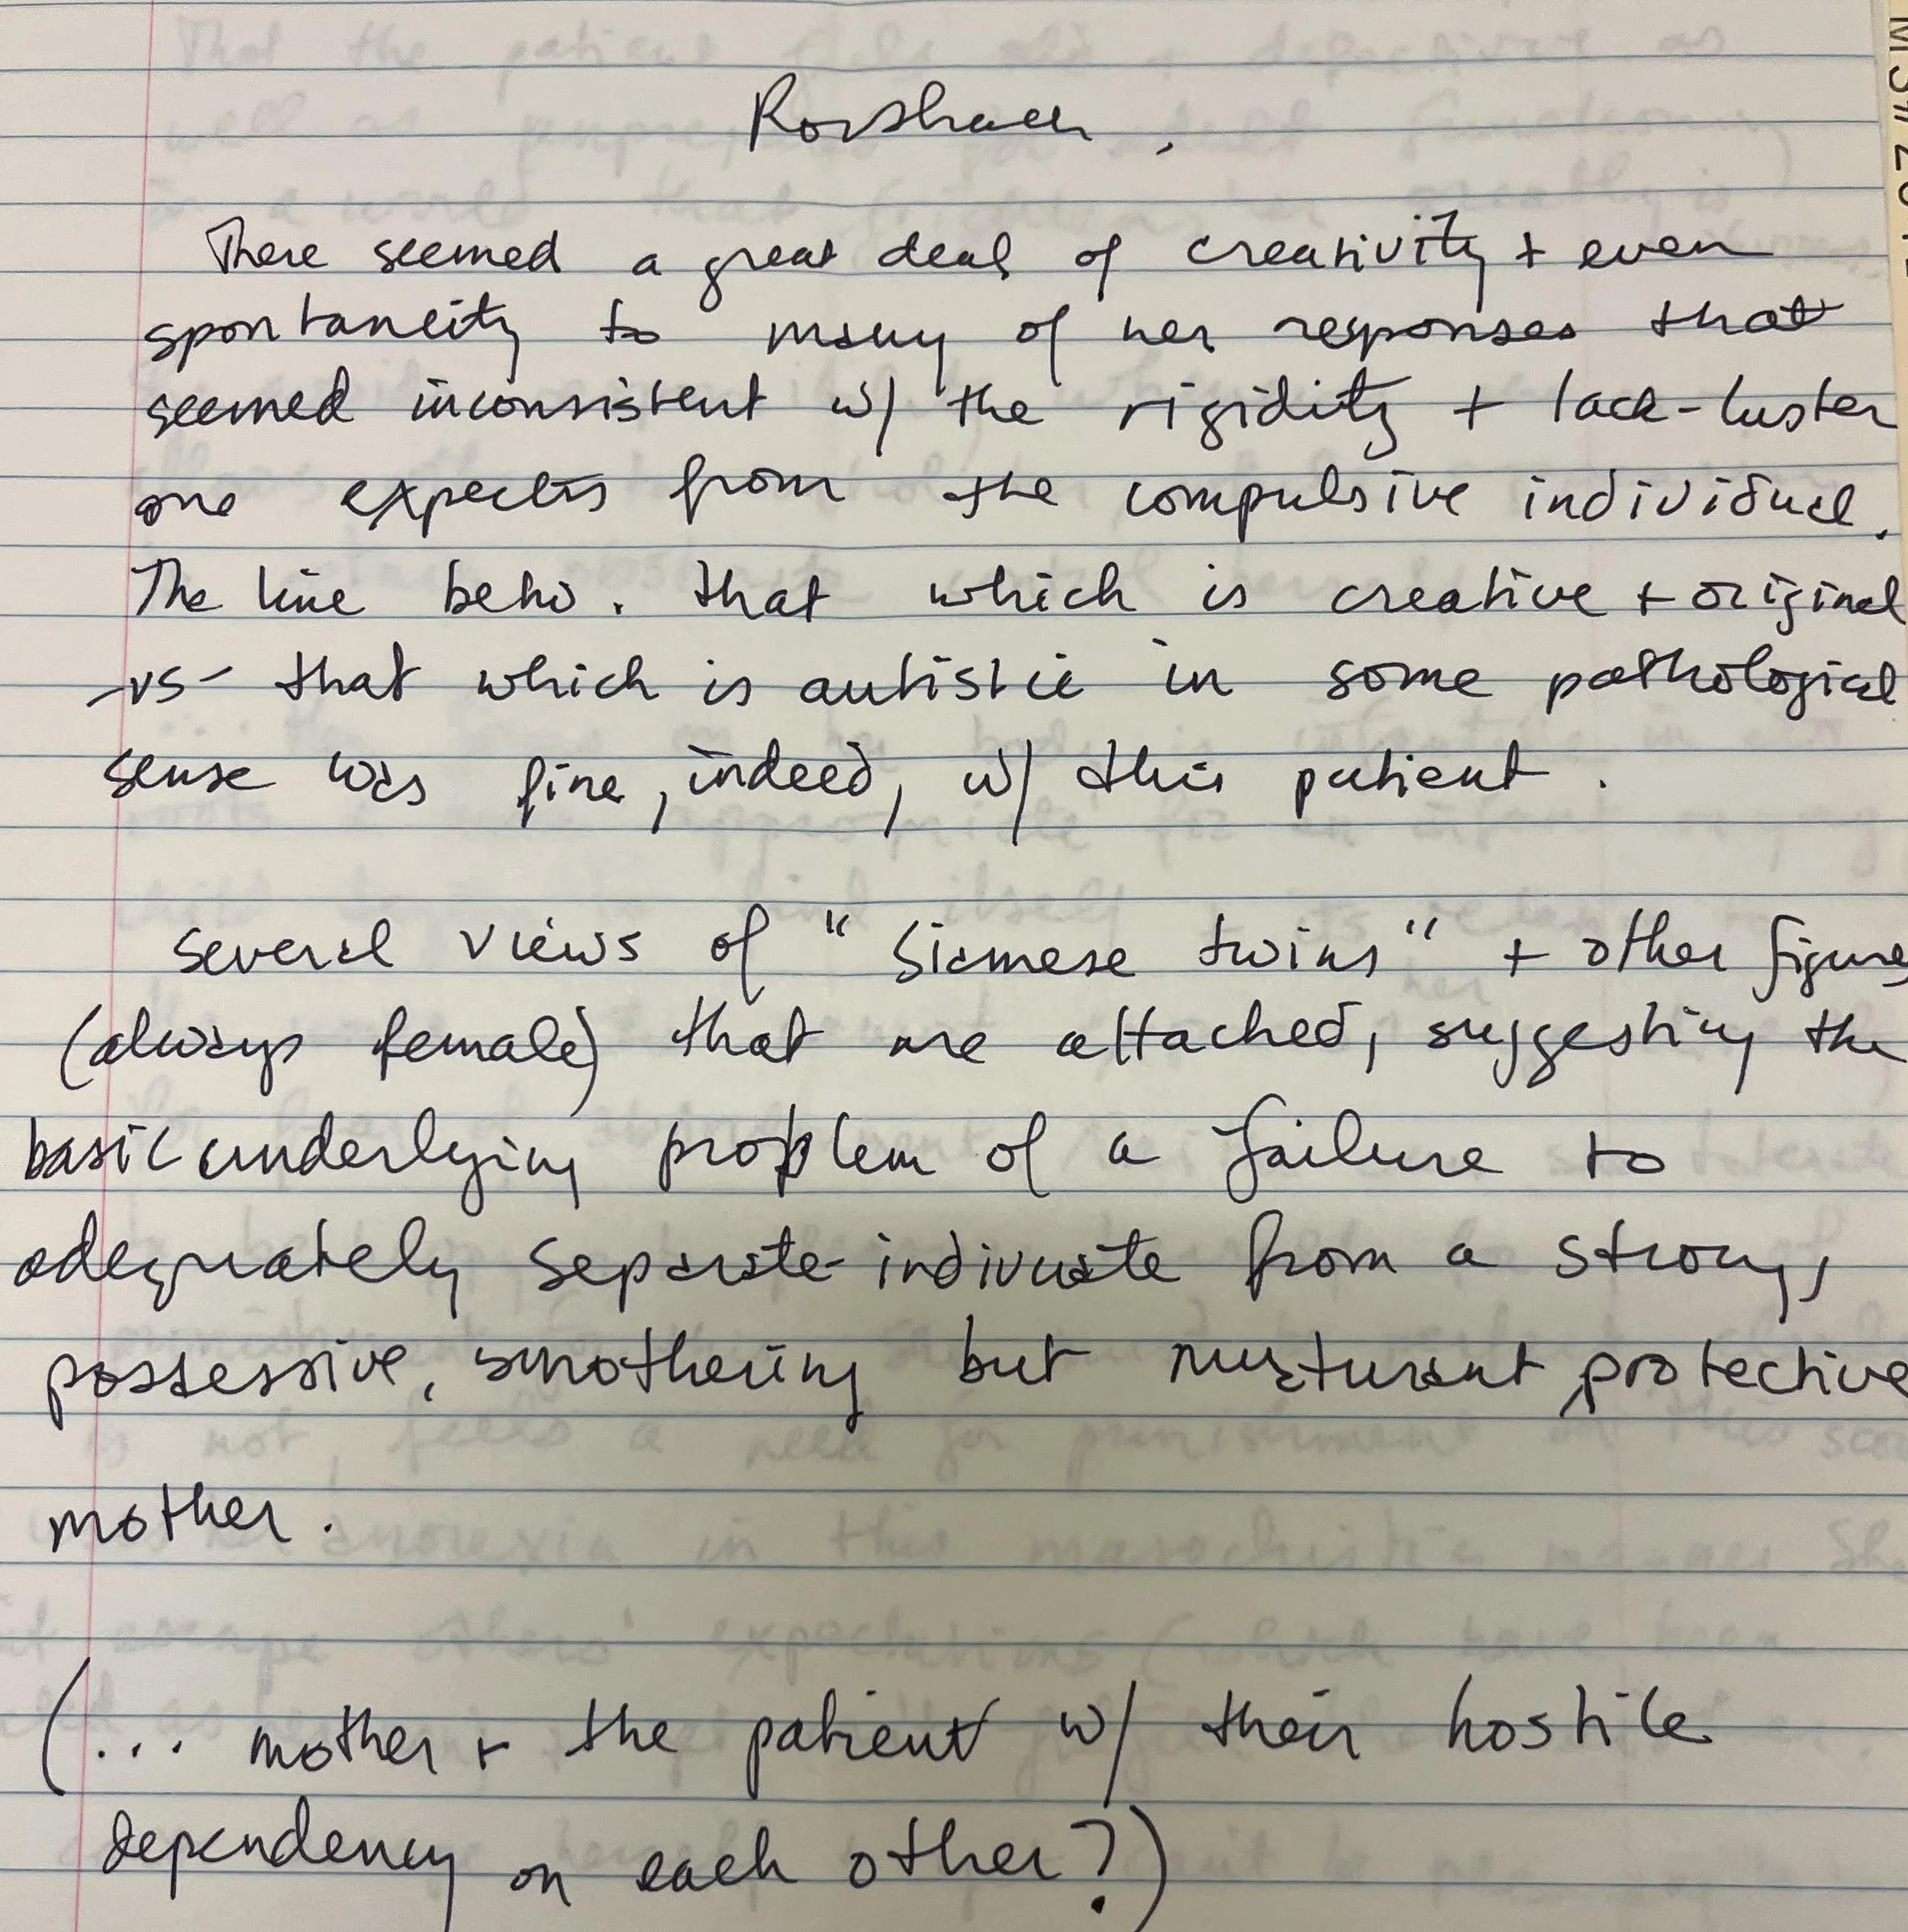 Rorshach
There seemed a great deal of creativity + even
spontaneity to many of her responses that
seemed inconsistent w/ the rigidity + lack-luster
one expects from the compulsive individual.
The line betw. that which is creative + original
-vs- that which is autistic in some pathological
sense was fine, indeed, w/ this patient.
Several views of "Siamese twins" + other figures
(always female) that are attached, suggesting the
basic underlying problem of a failure to
adequately separate-indivuate from a strong,
possessive, smothering but nurturant, protective
mother.
(... mother + the patient w/ their hostile
dependency on each other?)